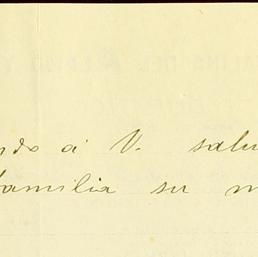 ndo á V. salu
familia su m